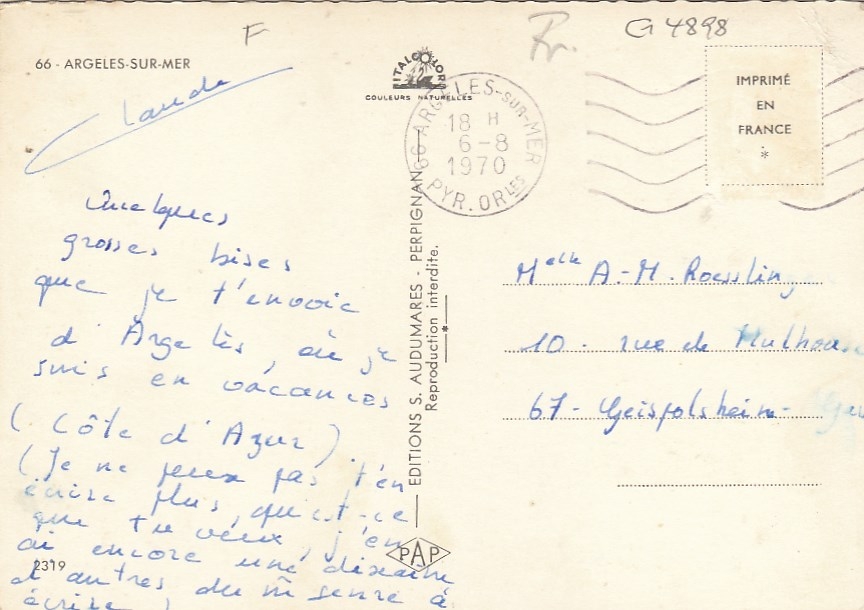 F
Fr.
G 4898
66 - ARGELES-SUR-MER
ITALCOLOR
COULEURS NATURELLES
66 ARGELES-SUR-MER
18 H
6-8
1970
PYR. ORLES
IMPRIMÉ
EN
FRANCE
*
Claude
Quelques
grosses bises
que je t'envoie
d'Argelès, où je
suis en vacances
(Côte d'Azur)
(Je ne peux pas t'en
écrire plus, qu'est-ce
que tu veux, j'en
ai encore une dizaine
d'autres du m̄ genre à
écrire)
2319
EDITIONS S. AUDUMARES - PERPIGNAN
Reproduction interdite.
*
PAP
Melle A.-M. Roesslinger
10. rue de Mulhouse
67 - Geispolsheim -